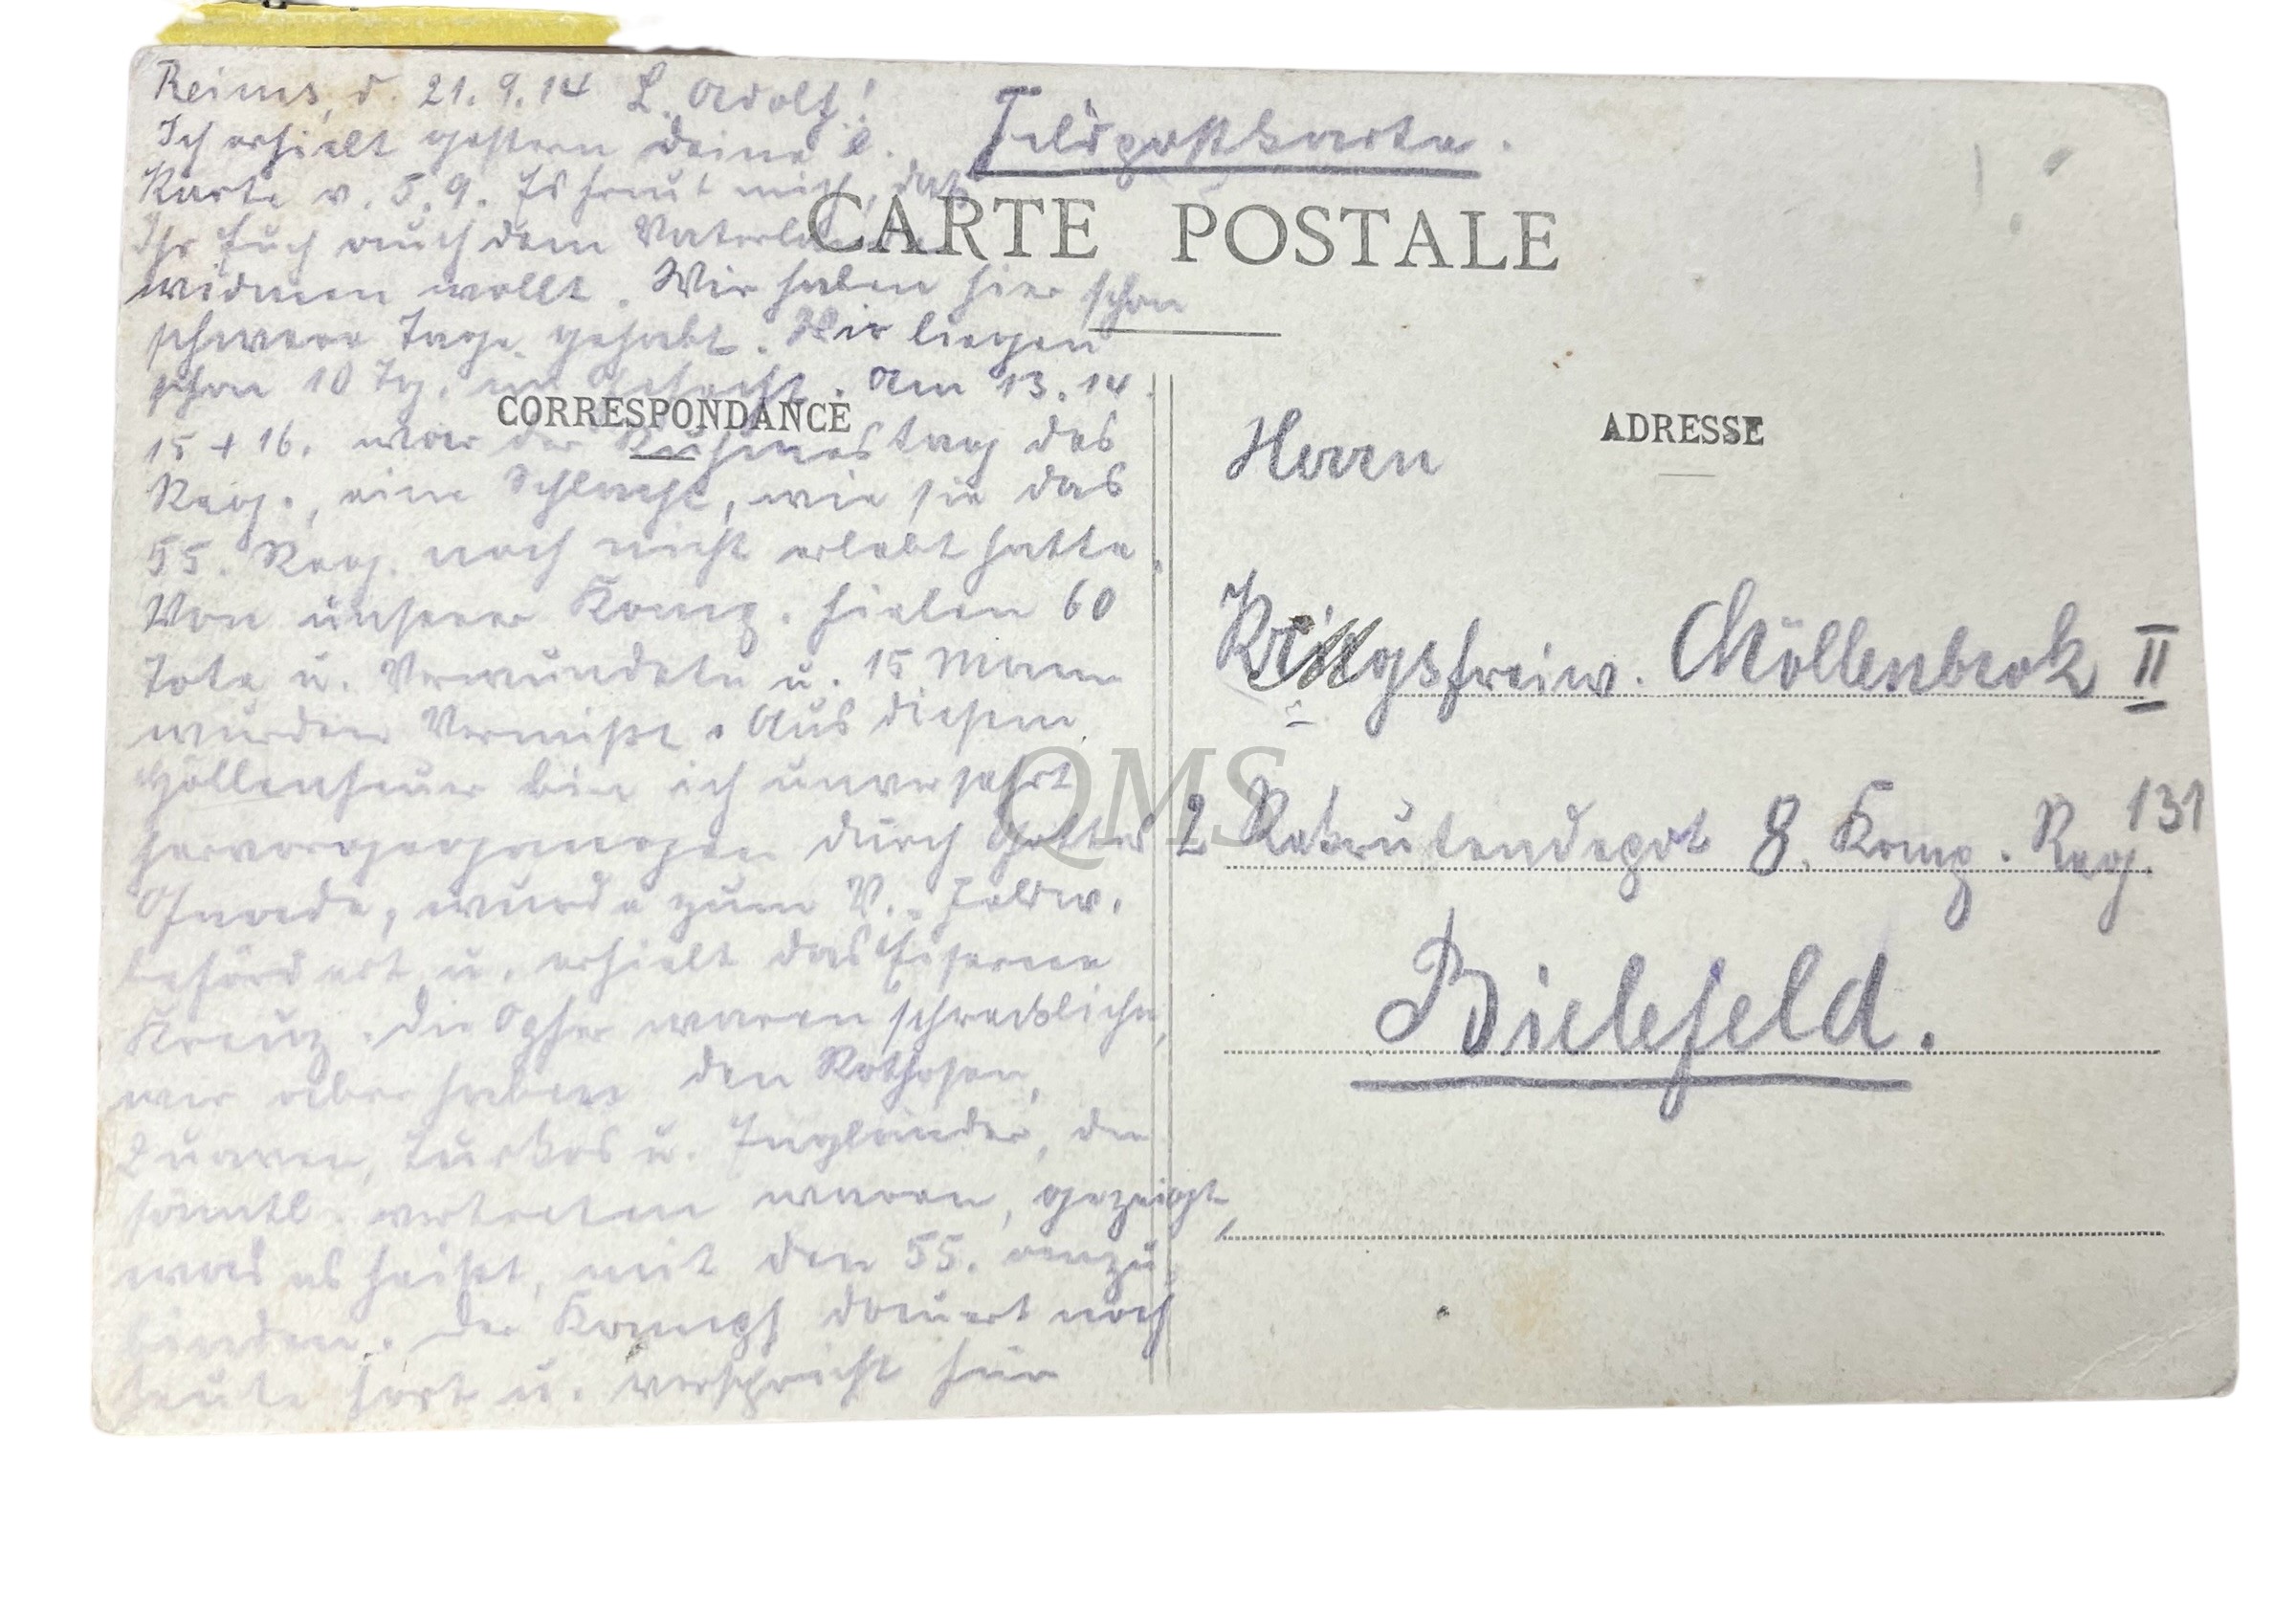 Reims, d. 21.9.14 L. Adolf!
Ich erhielt gestern Deine l.
Karte v. 5.9. Es freut mich, daß
Ihr Euch auch dem Vaterlande
widmen wollt. Wir haben hier schon
schwere Tage gehabt. Wir liegen
schon 10 Tg. im Gefecht. Am 13. 14.
15 + 16. war der Ruhmestag des
Reg., eine Schlacht, wie sie das
55. Reg. noch nicht erlebt hatte.
Von unserer Komp. fielen 60
Tote u. Verwundete u. 15 Mann
wurden Vermißt. Aus diesem
Höllenfeuer bin ich unversehrt
hervorgegangen durch Gottes
Gnade, wurde zum V. Feldw.
befördert u. erhielt das Eiserne
Kreuz. Die Opfer waren schrecklich,
wir aber haben den Rothosen,
Zuaven, Turkos u. Engländer, die
sämtl. vertreten waren, gezeigt,
was es heißt, mit den 55. anzu
binden. Der Kampf dauert noch
heute fort u. verspricht für
Feldpostkarte.
CARTE POSTALE
CORRESPONDANCE
ADRESSE
Herrn
Kriegsfreiw. Möllenbrok II
2 Rekrutendepot 8. Komp. Reg. 131
Bielefeld.
QMS